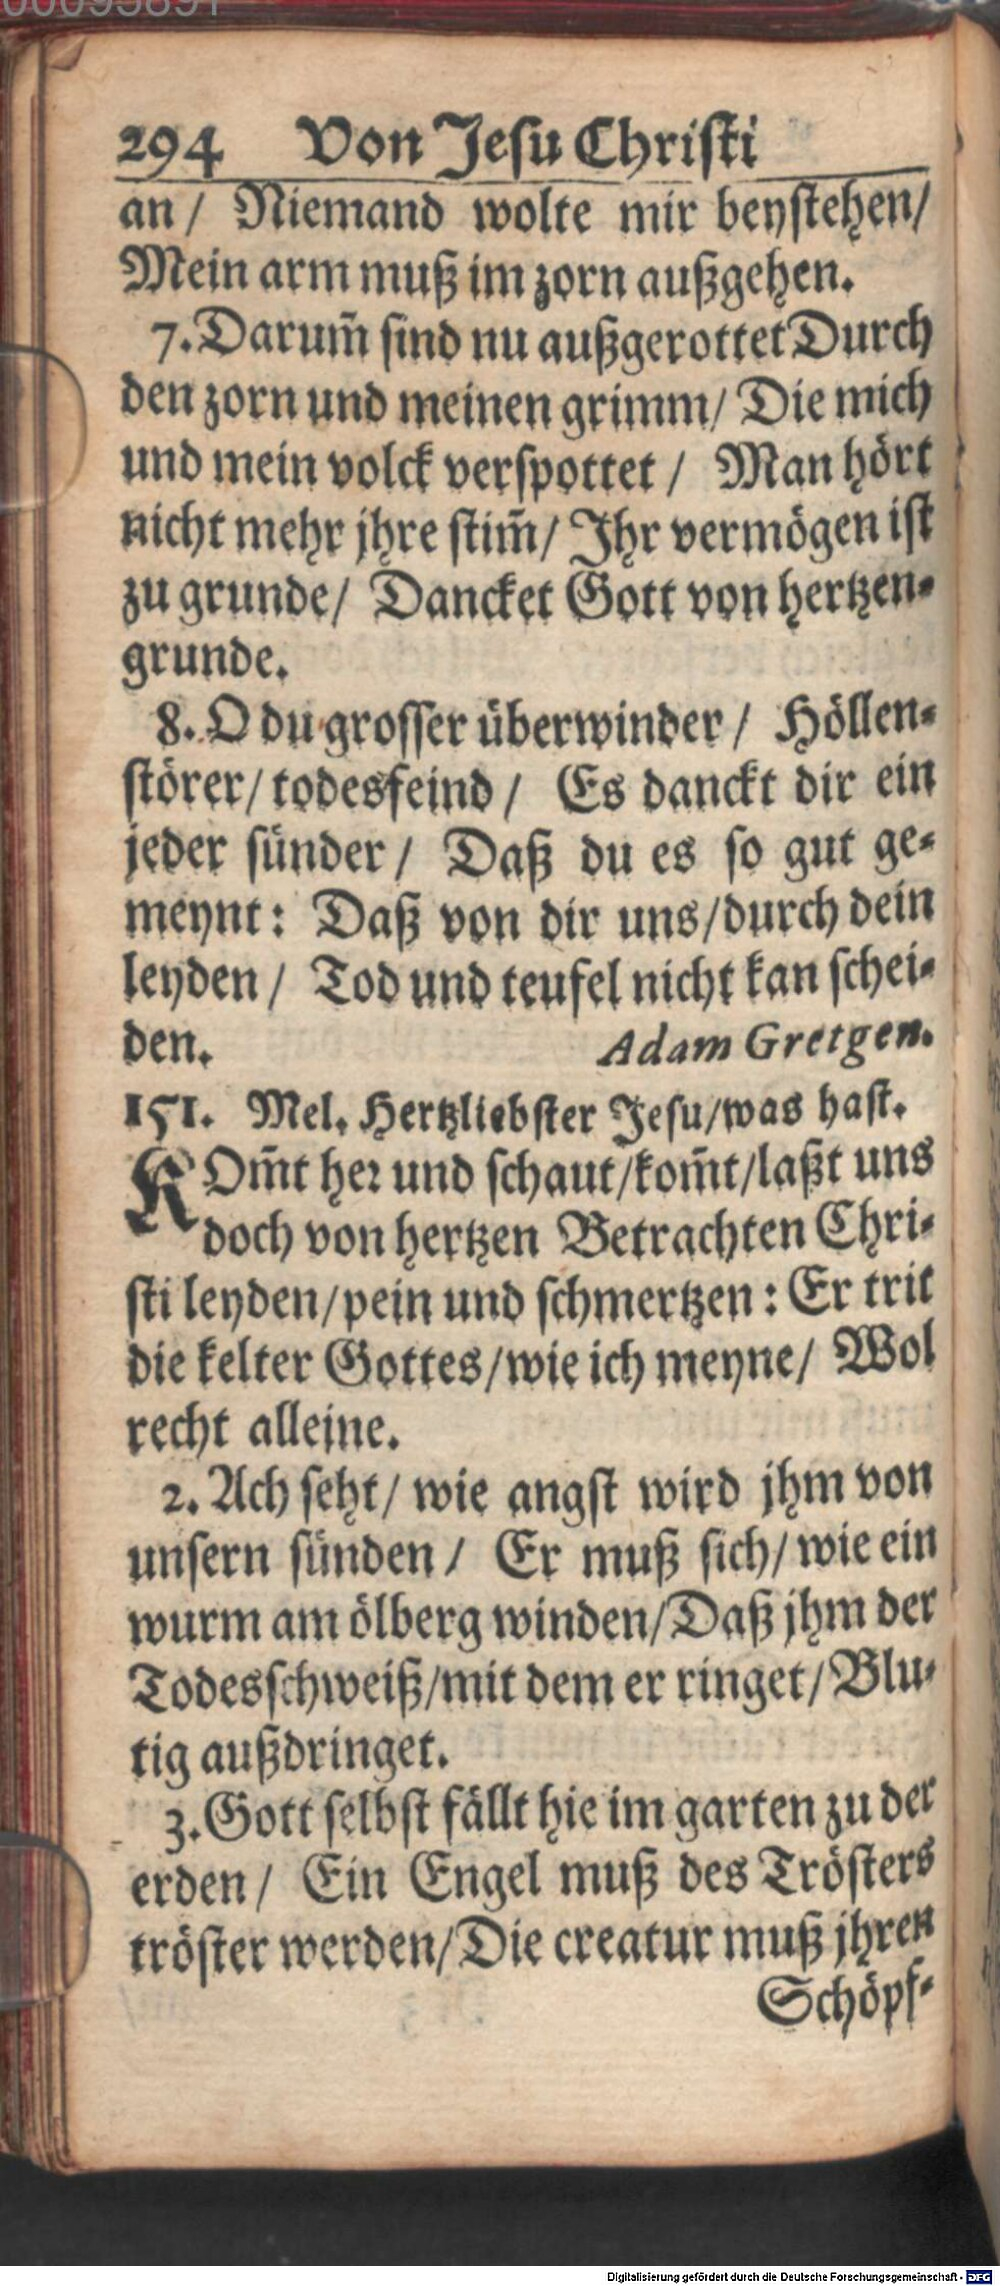 00095891
294 Von Jesu Christi
an / Niemand wolte mir beystehen/
Mein arm muß im zorn außgehen.
7. Darum̃ sind nu außgerottet Durch
den zorn und meinen grimm/ Die mich
und mein volck verspottet / Man hört
nicht mehr jhre stim̃/ Jhr vermögen ist
zu grunde/ Dancket Gott von hertzen-
grunde.
8. O du grosser überwinder / Höllen-
störer/ todesfeind / Es danckt dir ein
jeder sünder / Daß du es so gut ge-
meynt: Daß von dir uns/durch dein
leyden / Tod und teufel nicht kan schei-
den. Adam Gretgen.
151. Mel. Hertzliebster Jesu/was hast.
KOm̃t her und schaut/kom̃t/laßt uns
doch von hertzen Betrachten Chri-
sti leyden/pein und schmertzen: Er trit
die kelter Gottes/wie ich meyne/ Wol
recht alleine.
2. Ach seht/ wie angst wird jhm von
unsern sünden / Er muß sich/ wie ein
wurm am ölberg winden/Daß jhm der
Todesschweiß/mit dem er ringet/Blu-
tig außdringet.
3. Gott selbst fällt hie im garten zu der
erden / Ein Engel muß des Trösters
tröster werden/Die creatur muß jhren
Schöpf-
Digitalisierung gefördert durch die Deutsche Forschungsgemeinschaft - DFG